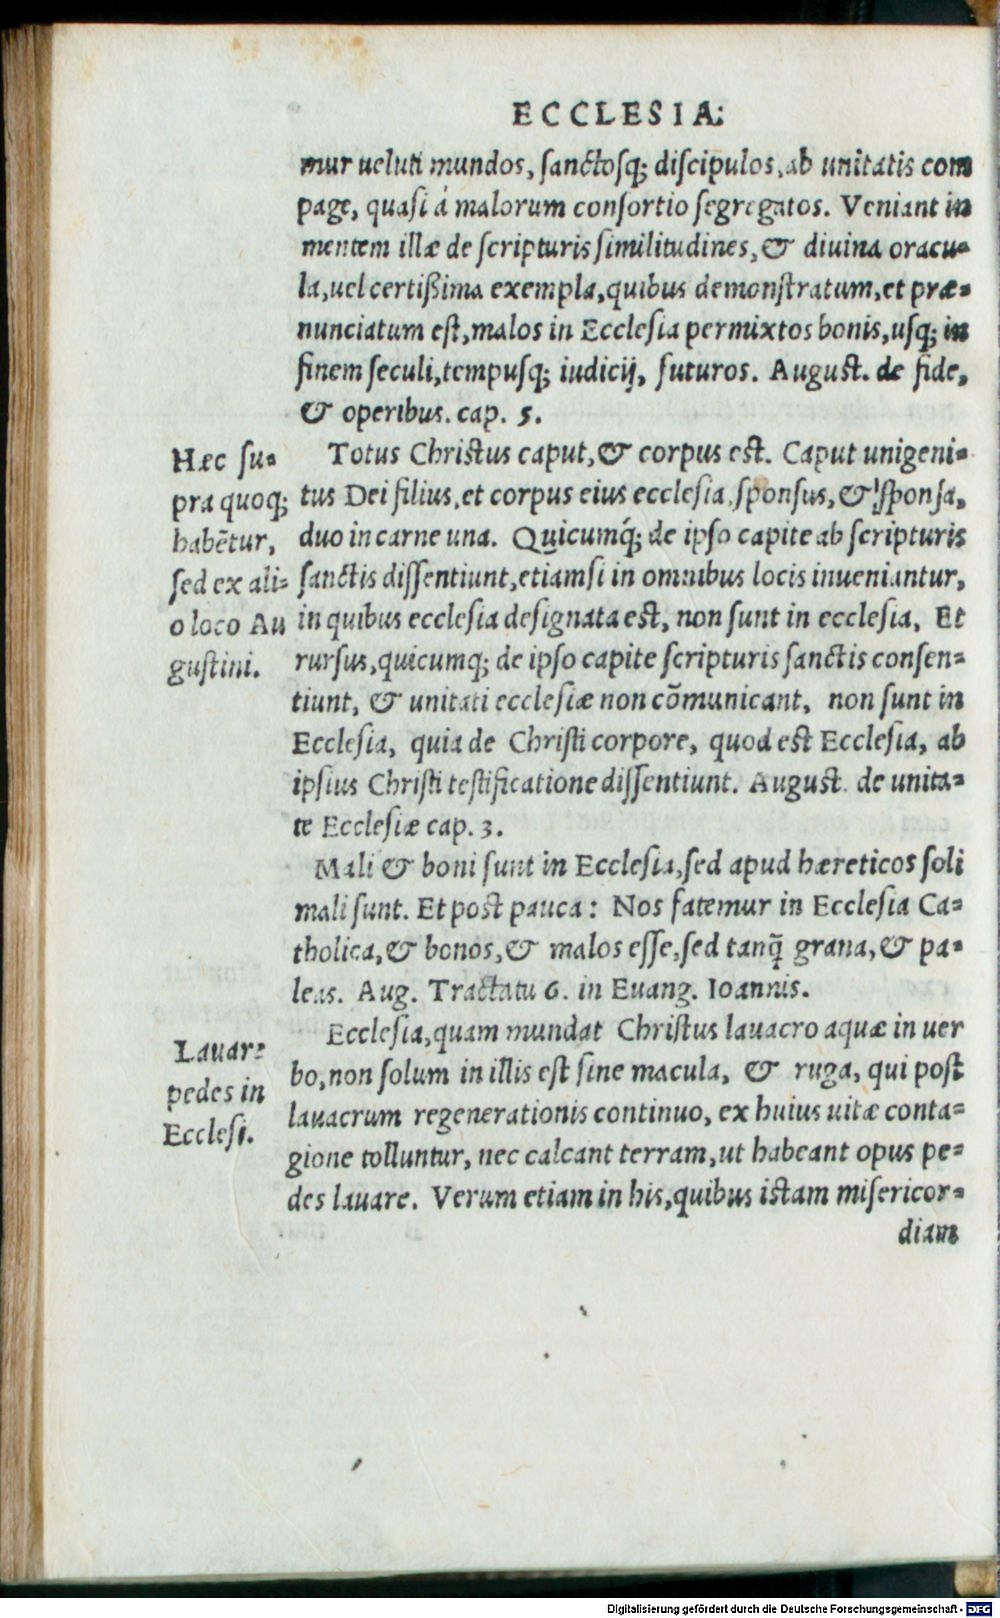 ECCLESIA:
mur ueluti mundos, sanctosq; discipulos, ab unitatis com
page, quasi á malorum consortio segregatos. Veniant in
mentem illæ de scripturis similitudines, & diuina oracu-
la, uel certißima exempla, quibus demonstratum, et præ-
nunciatum est, malos in Ecclesia permixtos bonis, usq; in
finem seculi, tempusq; iudicij, futuros. August. de fide,
& operibus. cap. 5.
Hæc su-
pra quoq;
habẽtur,
sed ex ali-
o loco Au
gustini.
Totus Christus caput, & corpus est. Caput unigeni-
tus Dei filius, et corpus eius ecclesia, sponsus, & sponsa,
duo in carne una. Quicumq́; de ipso capite ab scripturis
sanctis dissentiunt, etiamsi in omnibus locis inueniantur,
in quibus ecclesia designata est, non sunt in ecclesia, Et
rursus, quicumq; de ipso capite scripturis sanctis consen-
tiunt, & unitati ecclesiæ non cõmunicant, non sunt in
Ecclesia, quia de Christi corpore, quod est Ecclesia, ab
ipsius Christi testificatione dissentiunt. August. de unita-
te Ecclesiæ cap. 3.
Mali & boni sunt in Ecclesia, sed apud hæreticos soli
mali sunt. Et post pauca: Nos fatemur in Ecclesia Ca-
tholica, & bonos, & malos esse, sed tanq̃ grana, & pa-
leas. Aug. Tractatu 6. in Euang. Ioannis.
Lauare
pedes in
Ecclesi.
Ecclesia, quam mundat Christus lauacro aquæ in uer
bo, non solum in illis est sine macula, & ruga, qui post
lauacrum regenerationis continuo, ex huius uitæ conta-
gione tolluntur, nec calcant terram, ut habeant opus pe-
des lauare. Verum etiam in his, quibus istam misericor-
diam
Digitalisierung gefördert durch die Deutsche Forschungsgemeinschaft - DFG